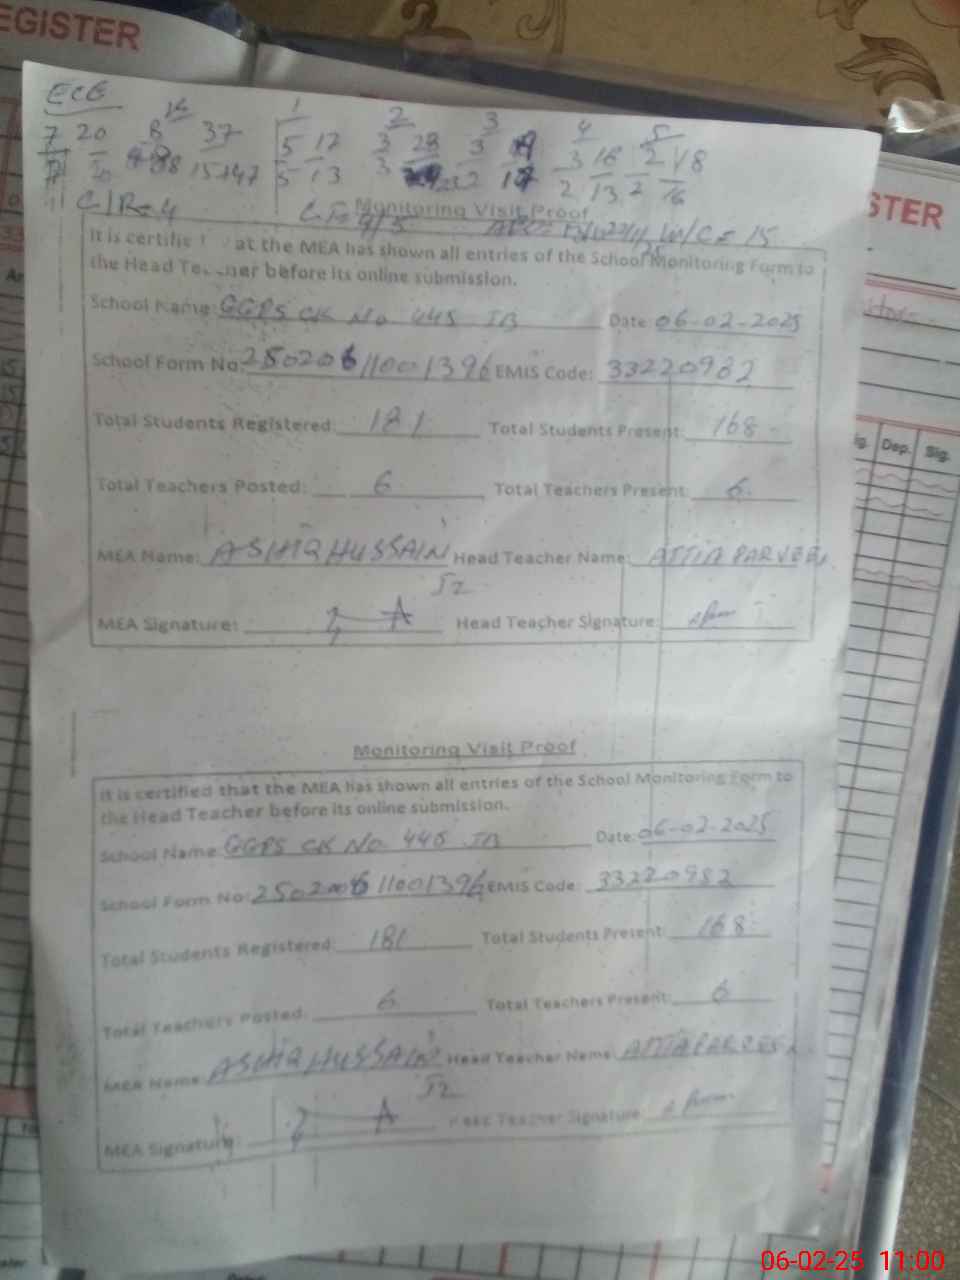 EGISTER
ECE
1 2 3 4 5
7 20 8 37 5 17 3 28 3 19 3 16 2 18
15 47 5 13 3 2 17 2 13 2 16
C/R=4 W/C=15
STER
Monitoring Visit Proof
It is at the MEA has shown all entries of the School Monitoring Form to
the Head before its online submission.
School Name: GGPS CK No 445 JB Date: 06-02-2025
School Form No: 25020611001396 EMIS Code: 33220982
Total Students Registered: 181 Total Students Present: 168
ig. Dep. Sig.
Total Teachers Posted: 6 Total Teachers Present: 6
MEA Name: ASHIQ HUSSAIN Head Teacher Name: ATTIA PARVEEN
52
MEA Signature: Head Teacher Signature:
Monitoring Visit Proof
It is certified that the MEA has shown all entries of the School Monitoring Form to
the Head Teacher before its online submission.
School Name: GGPS CK No 445 JB Date: 06-02-2025
School Form No: 250206 11001396 EMIS Code: 33220982
Total Students Registered: 181 Total Students Present: 168
Total Teachers Posted: 6 Total Teachers Present: 6
MEA Name: ASHIQ HUSSAIN Head Teacher Name: ATTIA PARVEEN
52
MEA Signature: Teacher Signature:
06-02-25 11:00